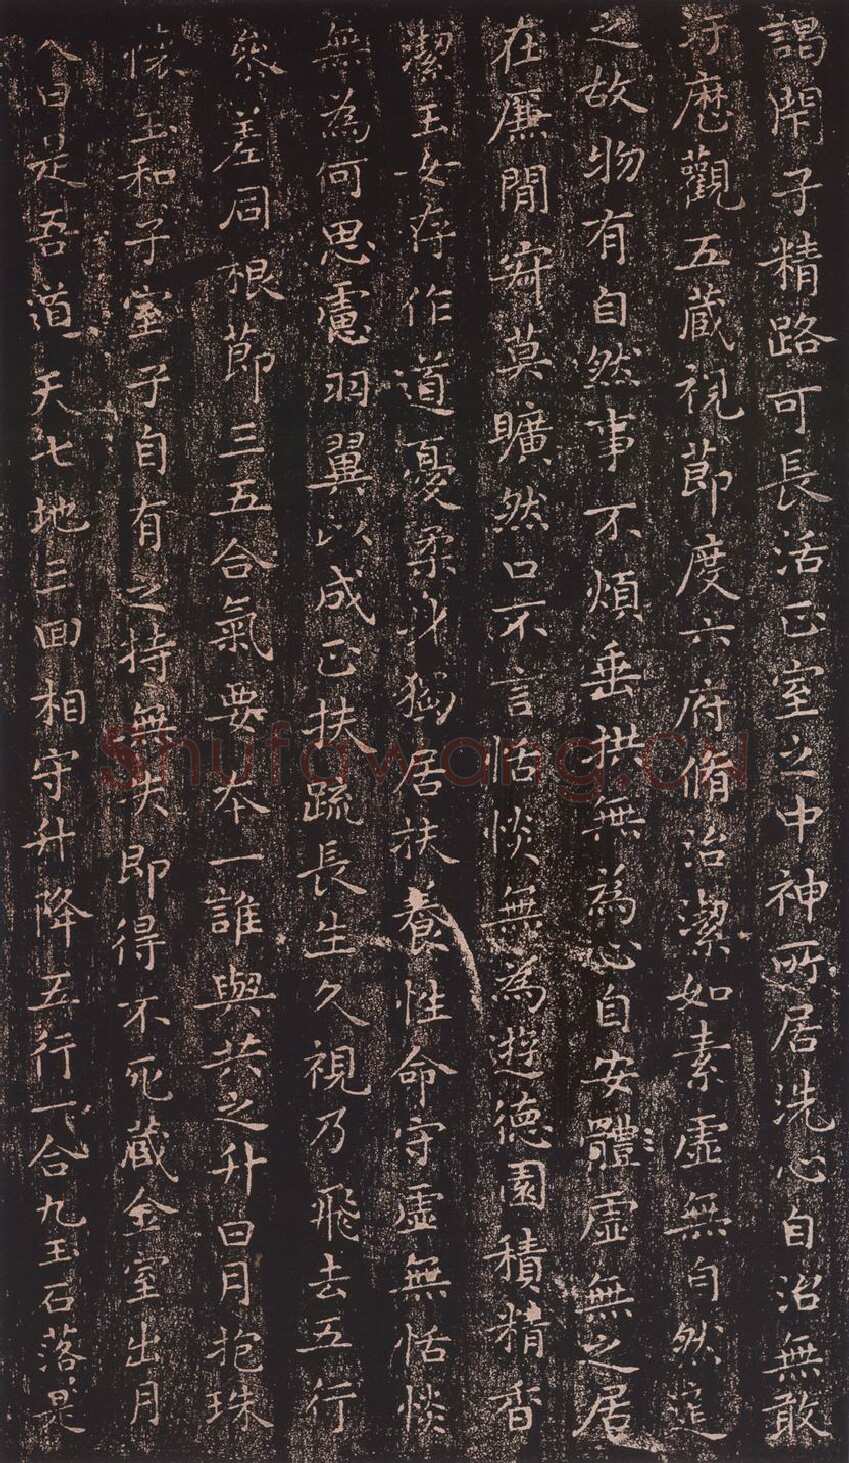 謁閇子精路可長活正室之中神所居洗心自治無敢
汙歷觀五藏視節度六府脩治潔如素虛無自然道
之故物有自然事不煩垂拱無為心自安體虛無之居
在廉閒寂莫曠然口不言恬惔無為遊德園積精香
潔玉女存作道憂柔身獨居扶養性命守虛無恬惔
無為何思慮羽翼以成正扶疏長生久視乃飛去五行
參差同根節三五合氣要本一誰與共之升日月抱珠
懷玉和子室子自有之持無失即得不死藏金室出月
入日是吾道天七地三回相守升降五行一合九玉石落是
Shufawang.cn